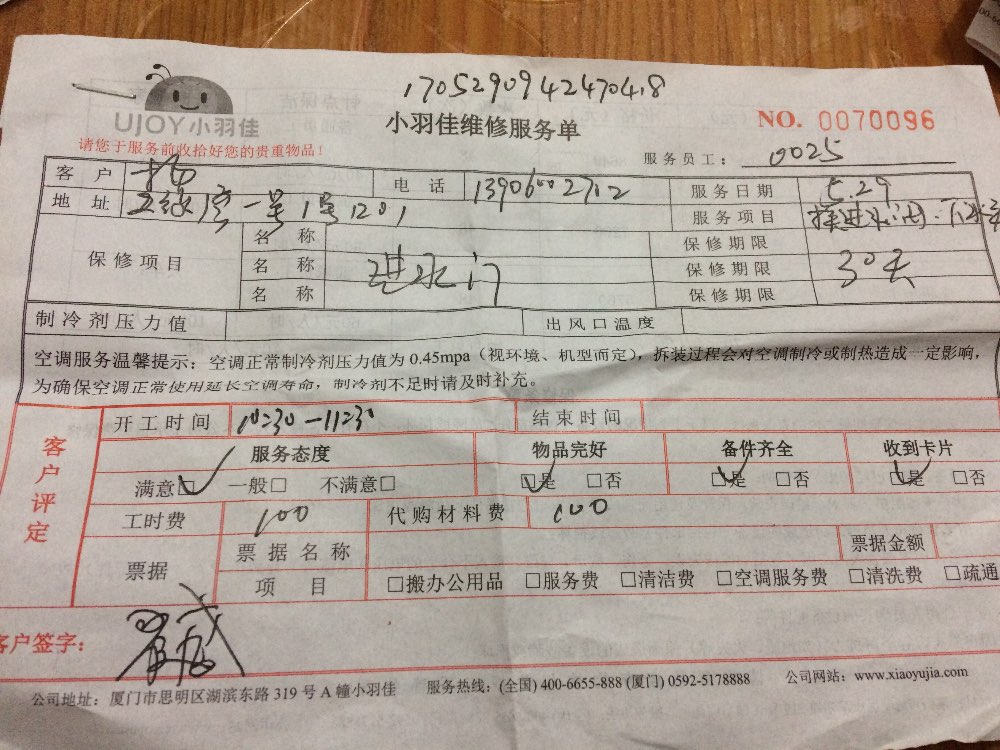 170529094247048
UJOY小羽佳
小羽佳维修服务单
NO. 0070096
请您于服务前收拾好您的贵重物品！
服务员工： 0025
客户 杨 电话 13906002712 服务日期 5.29
地址 一号1号1201 服务项目 换进水阀.
保修项目 名称 保修期限
名称 进水门 保修期限 30天
名称 保修期限
制冷剂压力值 出风口温度
空调服务温馨提示：空调正常制冷剂压力值为0.45mpa（视环境、机型而定），拆装过程会对空调制冷或制热造成一定影响，
为确保空调正常使用延长空调寿命，制冷剂不足时请及时补充。
客户评定
开工时间 10:30-11:30 结束时间
服务态度 物品完好 备件齐全 收到卡片
满意☑ 一般□ 不满意□ ☑是 □否 ☑是 □否 ☑是 □否
工时费 100 代购材料费 100
票据 票据名称 票据金额
项目 □搬办公用品 □服务费 □清洁费 □空调服务费 □清洗费 □疏通
客户签字：
公司地址：厦门市思明区湖滨东路 319 号 A 幢小羽佳 服务热线：(全国) 400-6655-888 (厦门) 0592-5178888 公司网站：www.xiaoyujia.com